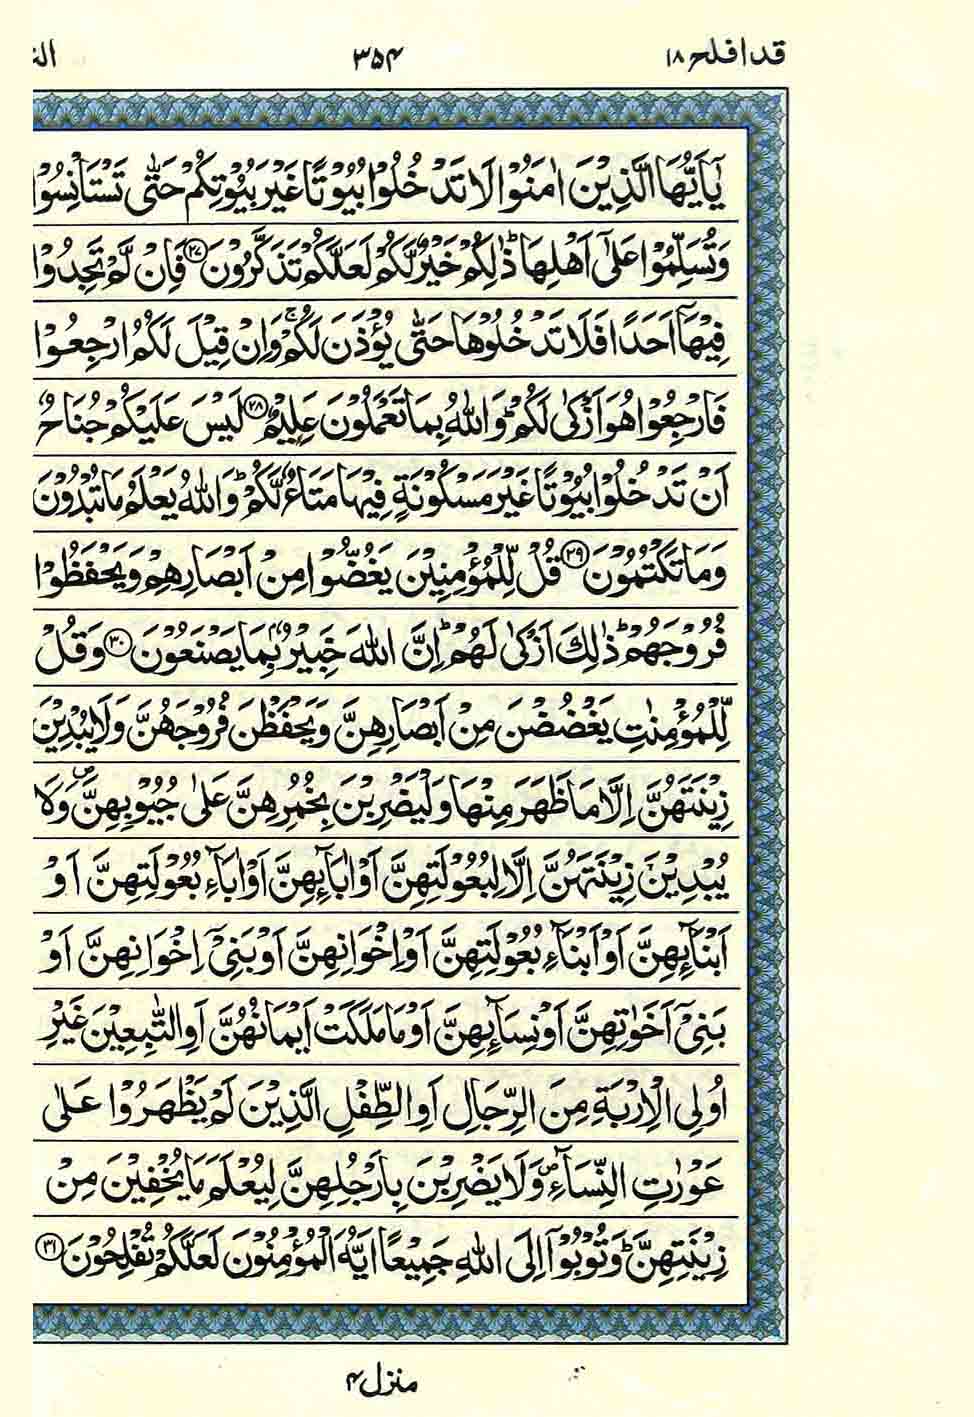 قد افلح ١٨ ٣٥٤ الن
يٰۤاَيُّهَا الَّذِيْنَ اٰمَنُوْا لَا تَدْخُلُوْا بُيُوْتًا غَيْرَ بُيُوْتِكُمْ حَتّٰى تَسْتَاْنِسُوْا
وَتُسَلِّمُوْا عَلٰۤى اَهْلِهَا ؕ ذٰلِكُمْ خَيْرٌ لَّكُمْ لَعَلَّكُمْ تَذَكَّرُوْنَ ﴿٢٧﴾ فَاِنْ لَّمْ تَجِدُوْا
فِيْهَاۤ اَحَدًا فَلَا تَدْخُلُوْهَا حَتّٰى يُؤْذَنَ لَكُمْ ۚ وَاِنْ قِيْلَ لَكُمُ ارْجِعُوْا
فَارْجِعُوْا هُوَ اَزْكٰى لَكُمْ ؕ وَاللّٰهُ بِمَا تَعْمَلُوْنَ عَلِيْمٌ ﴿٢٨﴾ لَيْسَ عَلَيْكُمْ جُنَاحٌ
اَنْ تَدْخُلُوْا بُيُوْتًا غَيْرَ مَسْكُوْنَةٍ فِيْهَا مَتَاعٌ لَّكُمْ ؕ وَاللّٰهُ يَعْلَمُ مَا تُبْدُوْنَ
وَمَا تَكْتُمُوْنَ ﴿٢٩﴾ قُلْ لِّلْمُؤْمِنِيْنَ يَغُضُّوْا مِنْ اَبْصَارِهِمْ وَيَحْفَظُوْا
فُرُوْجَهُمْ ؕ ذٰلِكَ اَزْكٰى لَهُمْ ؕ اِنَّ اللّٰهَ خَبِيْرٌۢ بِمَا يَصْنَعُوْنَ ﴿٣٠﴾ وَقُلْ
لِّلْمُؤْمِنٰتِ يَغْضُضْنَ مِنْ اَبْصَارِهِنَّ وَيَحْفَظْنَ فُرُوْجَهُنَّ وَلَا يُبْدِيْنَ
زِيْنَتَهُنَّ اِلَّا مَا ظَهَرَ مِنْهَا وَلْيَضْرِبْنَ بِخُمُرِهِنَّ عَلٰى جُيُوْبِهِنَّ ۪ وَلَا
يُبْدِيْنَ زِيْنَتَهُنَّ اِلَّا لِبُعُوْلَتِهِنَّ اَوْ اٰبَآئِهِنَّ اَوْ اٰبَآءِ بُعُوْلَتِهِنَّ اَوْ
اَبْنَآئِهِنَّ اَوْ اَبْنَآءِ بُعُوْلَتِهِنَّ اَوْ اِخْوَانِهِنَّ اَوْ بَنِيْۤ اِخْوَانِهِنَّ اَوْ
بَنِيْۤ اَخَوٰتِهِنَّ اَوْ نِسَآئِهِنَّ اَوْ مَا مَلَكَتْ اَيْمَانُهُنَّ اَوِ التّٰبِعِيْنَ غَيْرِ
اُولِى الْاِرْبَةِ مِنَ الرِّجَالِ اَوِ الطِّفْلِ الَّذِيْنَ لَمْ يَظْهَرُوْا عَلٰى
عَوْرٰتِ النِّسَآءِ ۪ وَلَا يَضْرِبْنَ بِاَرْجُلِهِنَّ لِيُعْلَمَ مَا يُخْفِيْنَ مِنْ
زِيْنَتِهِنَّ ؕ وَتُوْبُوْۤا اِلَى اللّٰهِ جَمِيْعًا اَيُّهَ الْمُؤْمِنُوْنَ لَعَلَّكُمْ تُفْلِحُوْنَ ﴿٣١﴾
منزل ۴